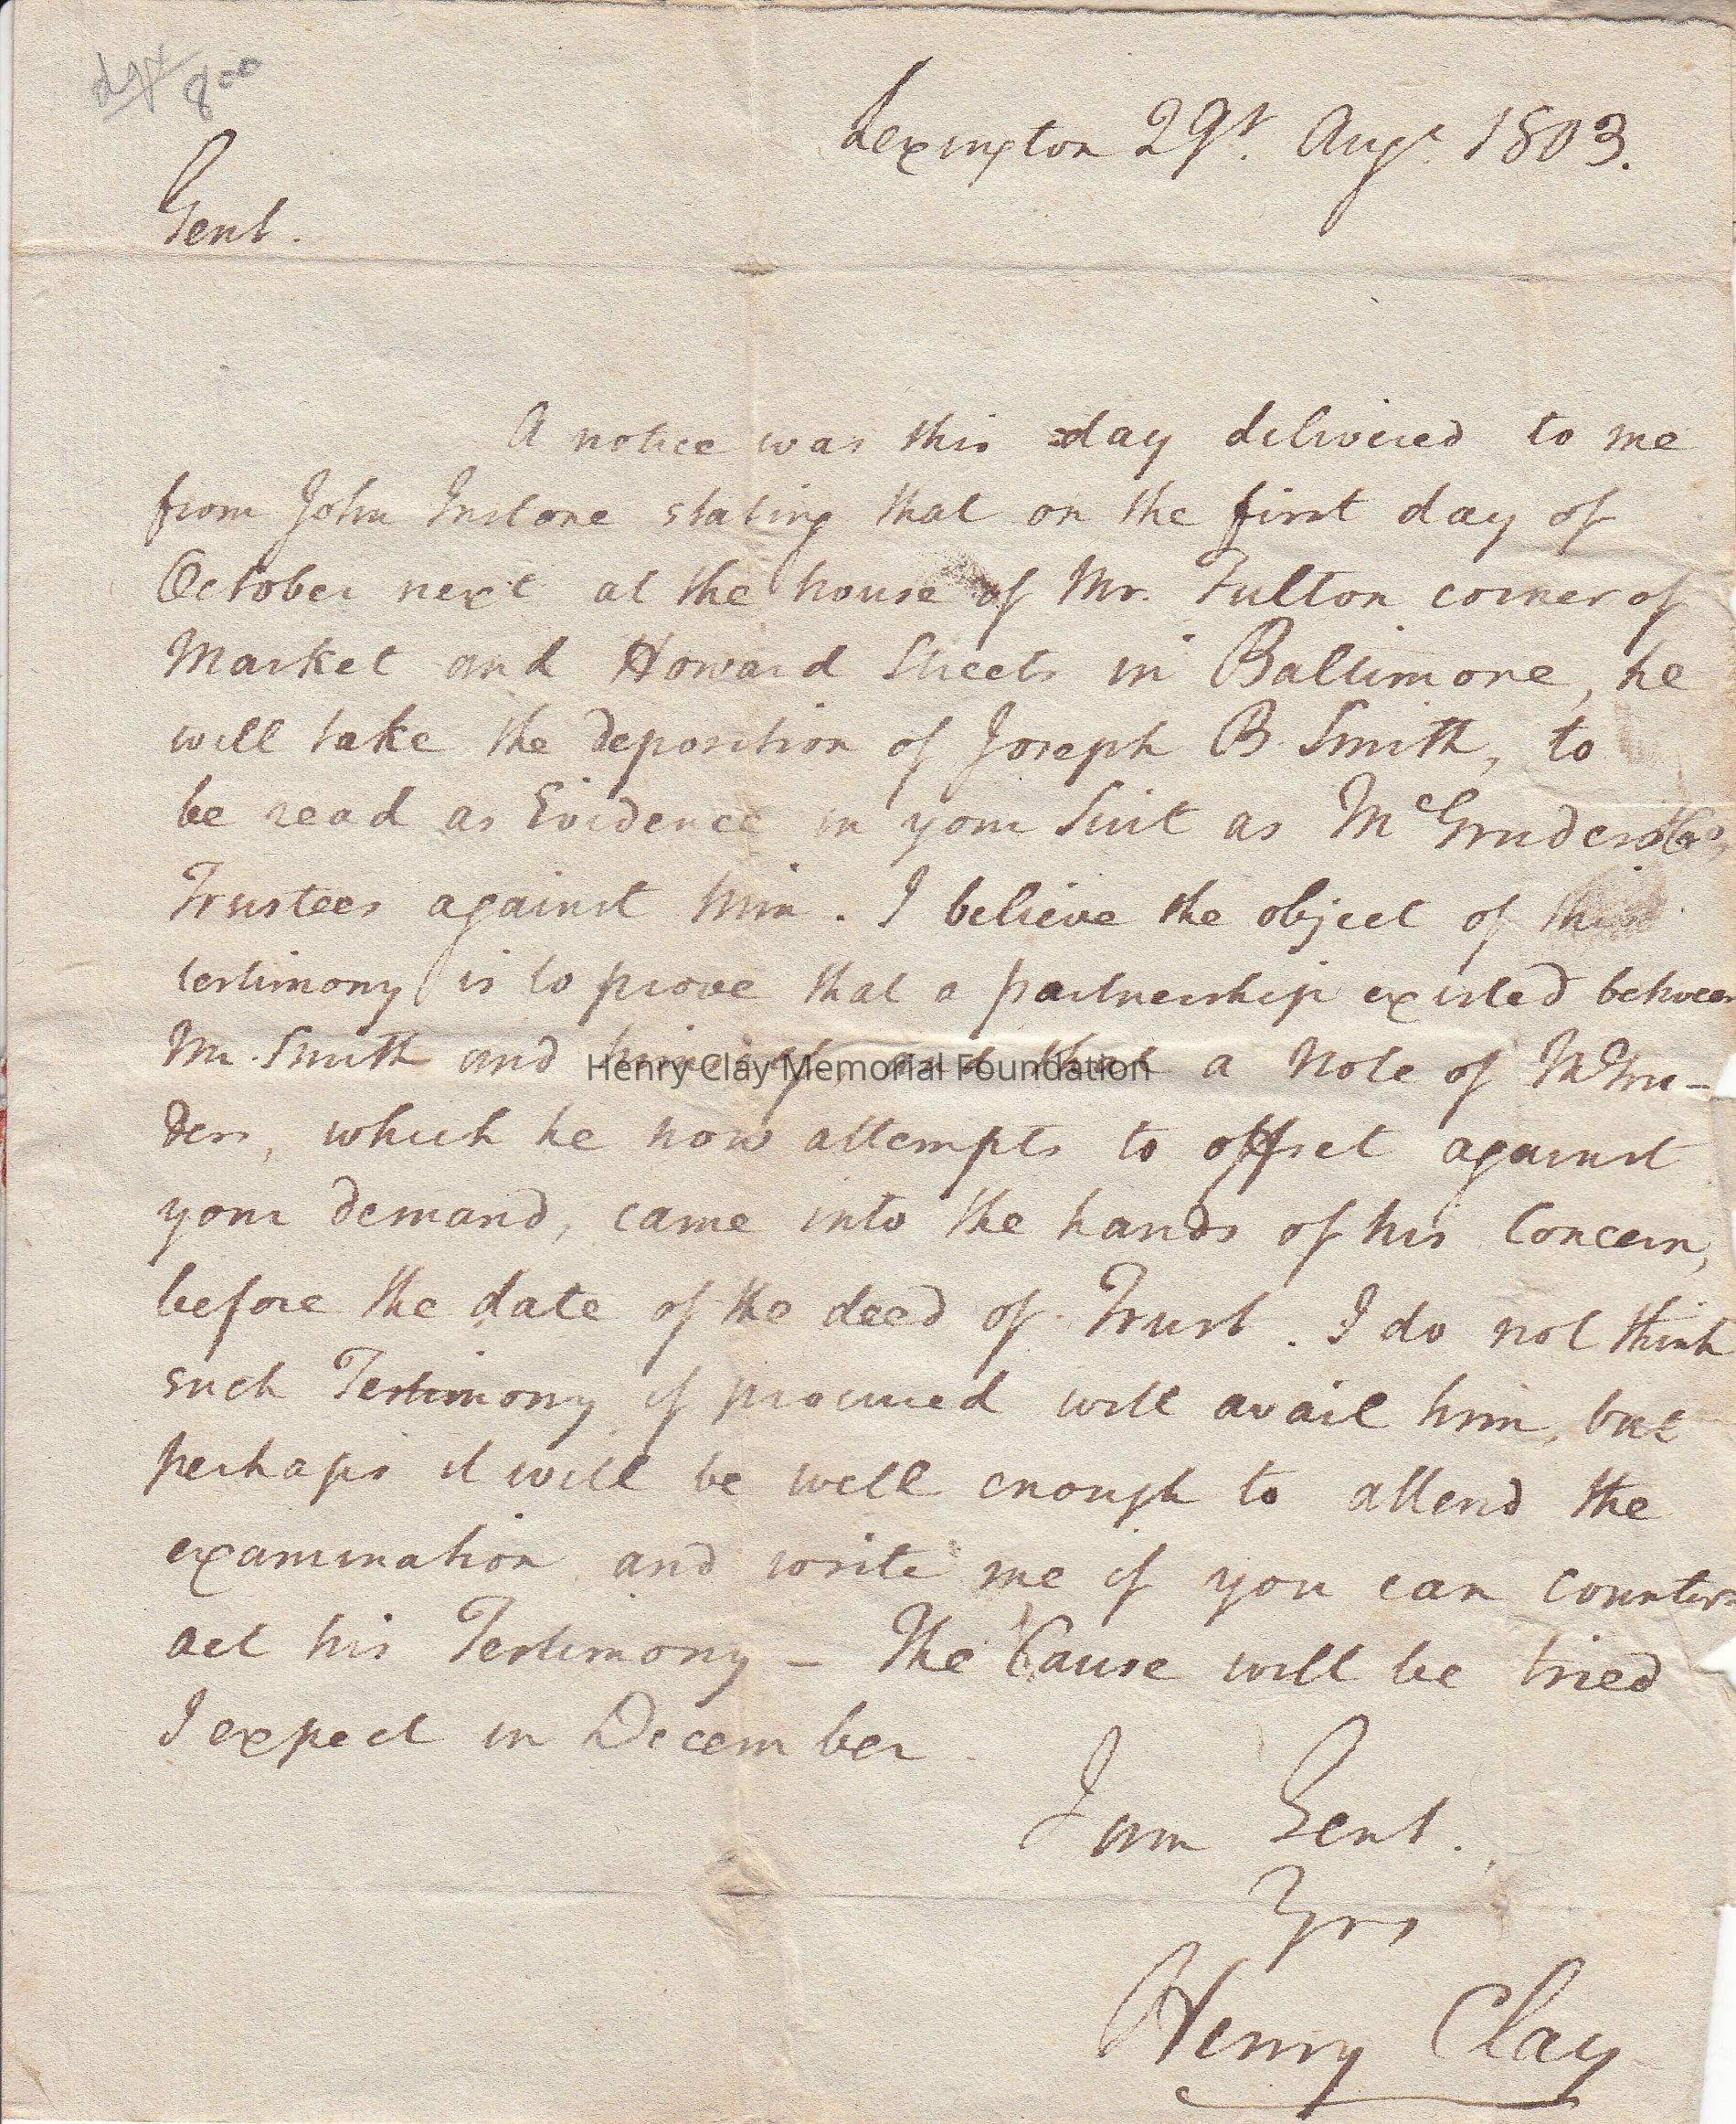 800
Lexington 29t. Augt. 1803.
Gent.
A notice was this day delivered to me
from John Instone stating that on the first day of
October next at the house of Mr. Fulton corner of
Market and Howard Streets in Baltimore, he
will take the deposition of Joseph B. Smith, to
be read as Evidence in your Suit as McGruders & Co,
Trustees against him. I believe the object of this
testimony is to prove that a partnership existed between
Mr. Smith and himself and that a Note of McGru-
ders, which he now attempts to offset against
your demand, came into the hands of his Concern,
before the date of the deed of Trust. I do not think
such Testimony if procured will avail him, but
perhaps it will be well enough to attend the
examination and write me if you can counter-
act his Testimony – The Cause will be tried
I expect in December.
I am Gent.
Yrs
Henry Clay
Henry Clay Memorial Foundation